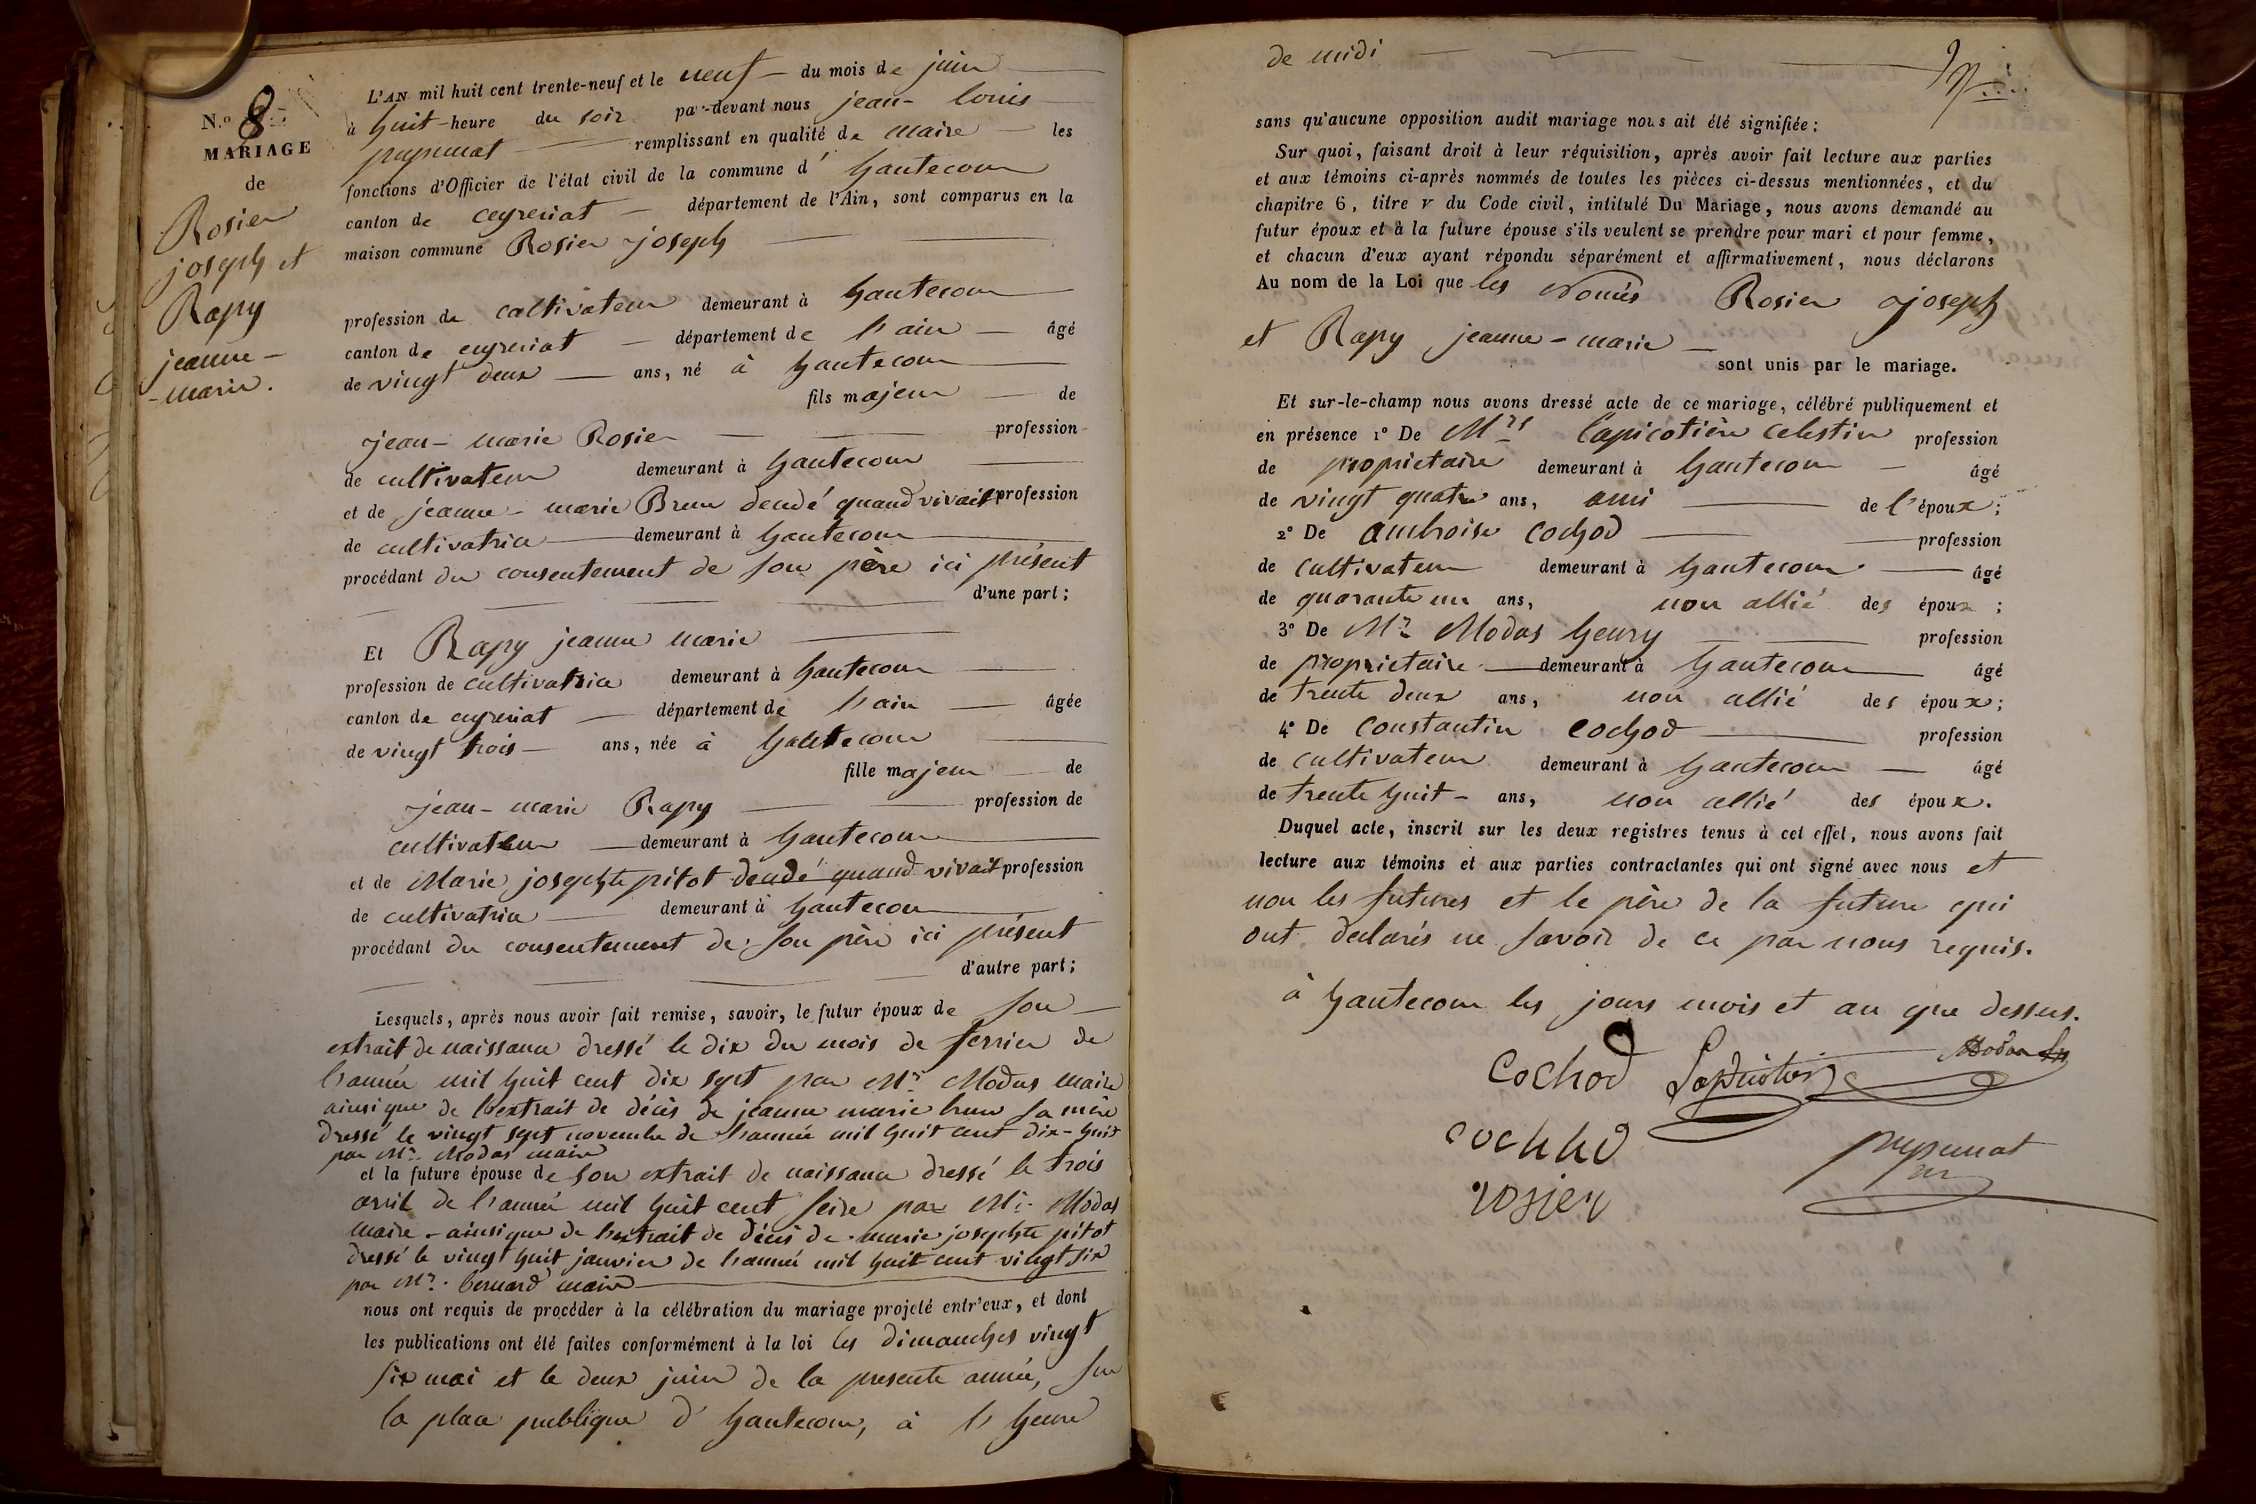 N.o 8
MARIAGE
de
Rosier
joseph et
Rapy
jeanne-
-marie.
L'AN mil huit cent trente-neuf et le neuf du mois de juin
à huit heure du soir par-devant nous jean-louis
puysunat remplissant en qualité de maire les
fonctions d'Officier de l'état civil de la commune d' hautecour
canton de ceyzeriat département de l'Ain, sont comparus en la
maison commune Rosier joseph
profession de cultivateur demeurant à hautecour
canton de ceyzeriat département de l'ain âgé
de vingt deux ans, né à hautecour
fils majeur de
jean-marie Rosier profession
de cultivateur demeurant à hautecour
et de jeanne-marie Brun decedé quand vivait profession
de cultivatrice demeurant à hautecour
procédant du consentement de son père ici présent
d'une part;
Et Rapy jeanne marie
profession de cultivatrice demeurant à hautecour
canton de ceyzeriat département de l'ain âgée
de vingt trois ans, née à hautecour
fille majeur de
jean-marie Rapy profession de
cultivateur demeurant à hautecour
et de Marie josephte pitot decedé quand vivait profession
de cultivatrice demeurant à hautecour
procédant du consentement de son père ici présent
d'autre part;
Lesquels, après nous avoir fait remise, savoir, le futur époux de son
extrait de naissance dressé le dix du mois de fevrier de
l'année mil huit cent dix sept par Mr Modas maire
ainsi que de l'extrait de décès de jeanne marie brun sa mère
dressé le vingt sept novembre de l'année mil huit cent dix-huit
par Mr. Modas maire
et la future épouse de son extrait de naissance dressé le trois
avril de l'année mil huit cent seize par Mr. Modas
maire - ainsi que de l'extrait de décès de marie josephte pitot
dressé le vingt huit janvier de l'année mil huit cent vingt six
par Mr. bernard maire
nous ont requis de procéder à la célébration du mariage projeté entr'eux, et dont
les publications ont été faites conformément à la loi les dimanches vingt
six mai et le deux juin de la presente année, sur
la place publique d' hautecour, à l' heure
de midi
sans qu'aucune opposition audit mariage nous ait été signifiée:
Sur quoi, faisant droit à leur réquisition, après avoir fait lecture aux parties
et aux témoins ci-après nommés de toutes les pièces ci-dessus mentionnées, et du
chapitre 6, titre v du Code civil, intitulé Du Mariage, nous avons demandé au
futur époux et à la future épouse s'ils veulent se prendre pour mari et pour femme,
et chacun d'eux ayant répondu séparément et affirmativement, nous déclarons
Au nom de la Loi que les només Rosier joseph
et Rapy jeanne-marie
sont unis par le mariage.
Et sur-le-champ nous avons dressé acte de ce mariage, célébré publiquement et
en présence 1° De Mrs Lapicotière celestin profession
de proprietaire demeurant à hautecour âgé
de vingt quatre ans, ami de l'époux;
2° De ambroise cochod profession
de cultivateur demeurant à hautecour âgé
de quarante un ans, non allié des époux;
3° De Mr Modas henry profession
de proprietaire demeurant à hautecour âgé
de trente deux ans, non allié des époux;
4° De constantin cochod profession
de cultivateur demeurant à hautecour âgé
de trente huit ans, non allié des époux.
Duquel acte, inscrit sur les deux registres tenus à cet effet, nous avons fait
lecture aux témoins et aux parties contractantes qui ont signé avec nous et
non les futures et le père de la future qui
ont declarés ne savoir de ce par nous requis.
à hautecour les jours mois et an que dessus.
Cochod Lapicotière Modas
cochod
rosier puysunat